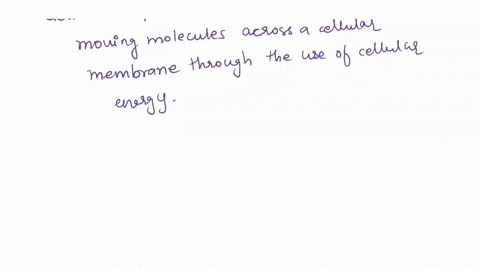 moving molecules across a cellular
membrane through the use of cellular
energy.